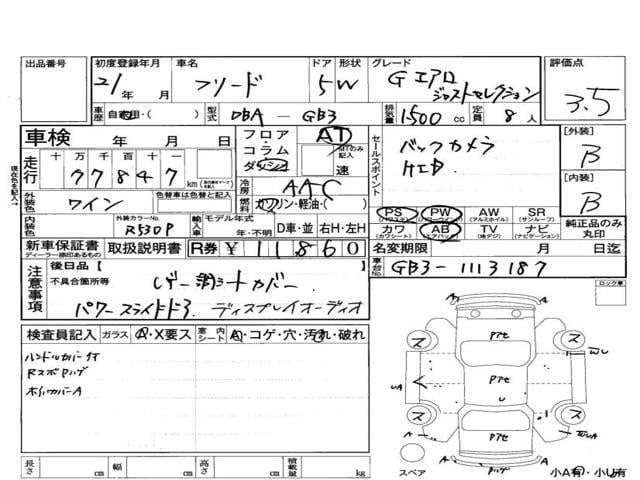 出品番号 初度登録年月 車名 ドア 形状 グレード 評価点
21年 月 フリード 5 W Gエアロ
ジャストセレクション 3.5
車歴 自家用・( ) 型式 DBA - GB3 排気量 1500 cc 定員 8 人
車検 年 月 日 フロア・コラム ダッシュ AT MTのみ記入 速 セールスポイント バックカメラ [外装] B
走行 十 万 千 百 十 一 HID
97847 km [内装] B
現在色を記入→ 外装色 ワイン 色替車は色替と記入 冷房 AAC
燃料 ガソリン・軽油・( ) PS PW AW SR
(パワーウィンドウ) (アルミホイル) (サンルーフ)
内装色 外装カラーNo. R530P 輸入車 モデル年式 年・不明 D車・並 右H・左H カワ AB TV ナビ 純正品のみ丸印
(カワシート) (エアバッグ) (地デジ) (ナビゲーション)
新車保証書 取扱説明書 R券 ¥11860 名変期限 月 日迄
ディーラー捺印あるもの
車台No. GB3-1113187
注意事項 後日品【 】
不具合箇所等 レザー調シートカバー ロック車
パワースライドドア ディスプレイオーディオ
検査員記入 ガラス A・X要ス 室内シート A・コゲ・穴・汚れ・破れ
ハンドルカバー付
ホイルカバーA
スペア
長さ cm 幅 cm 高さ cm 積載量 kg 小A有・小U有